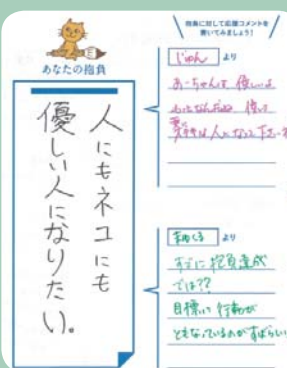 あなたの抱負
人にもネコにも
優しい人になりたい。
抱負に対して応援コメントを
書いてみましょう！
じゅん より
あーちゃんは 優しい
人になって下さいね
まめくる より
すでに 抱負達成
では??
目標に 行動が
ともなっているのがすばらしい